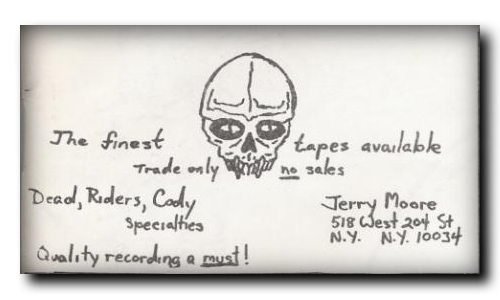 The finest tapes available
Trade only no sales
Dead, Riders, Cody
Specialties
Quality recording a must!
Jerry Moore
518 West 204 St
N.Y. N.Y. 10034